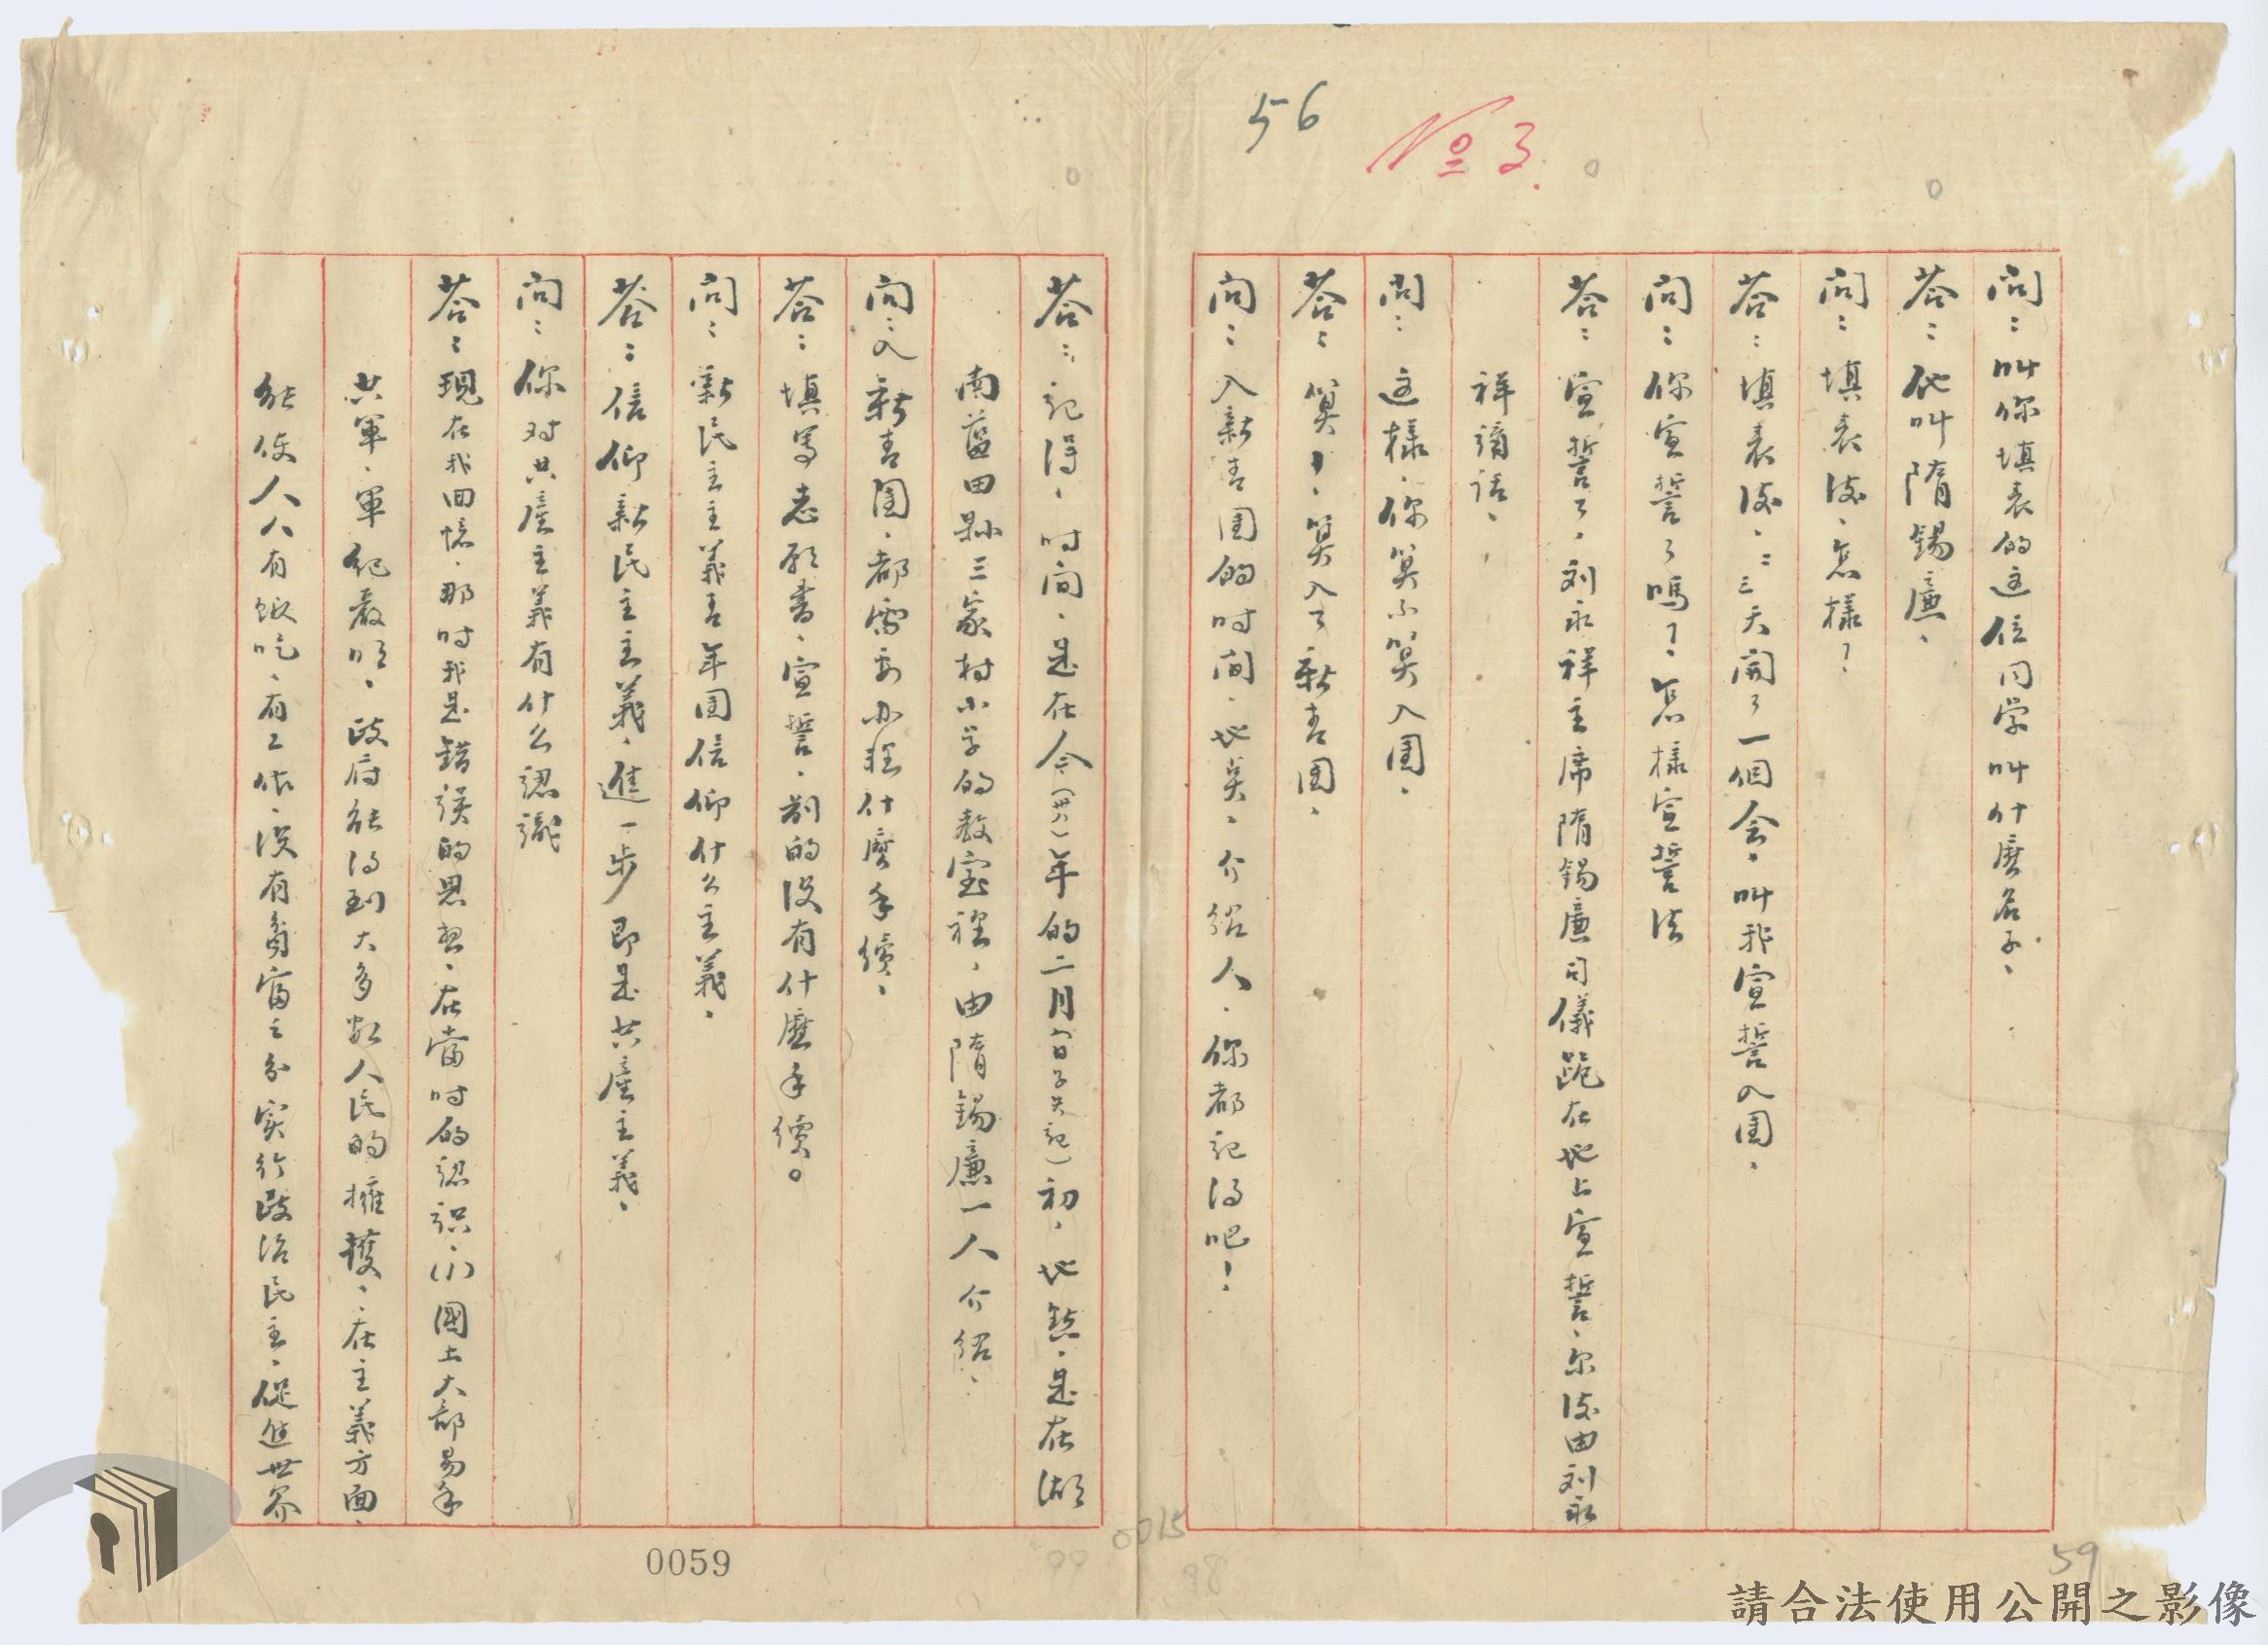 56
No 3.
問：叫你填表的这位同学叫什麽名子、
荅：他叫隋錫廉、
問：填表後、怎樣？
荅：填表後、二三天開了一個会，叫我宣誓入团、
問：你宣誓了嗎？怎樣宣誓法
荅：宣誓了，刘永祥主席隋錫廉司儀跪在地上宣誓、尔後由刘永
祥講話、
問：这樣、你算不算入团、
荅：算了、算入了新青团、
問：入新青团的时间、地奌、介紹人、你都記得吧！
荅：記得、时间、是在今（卅八）年的二月（日子失記）初，地點、是在湖
南藍田縣三家村小学的教室裡，由隋錫廉一人介紹、
問：入新青团、都需要办理什麽手續、
荅：填寫志願書、宣誓、别的没有什麽手續。
問：新民主主義青年团信仰什么主義、
荅：信仰新民主主義、進一步即是共產主義、
問：你对共產主義有什么認識
荅：現在我回憶、那时我是錯误的思想、在當时的認识、(1)國土大部易手
共軍、軍纪嚴明、政府能得到大多数人民的擁護、在主義方面、
能使人人有飯吃、有工作、没有貧富之分实行政治民主、促進世界
0059
0015
98
59
請合法使用公開之影像